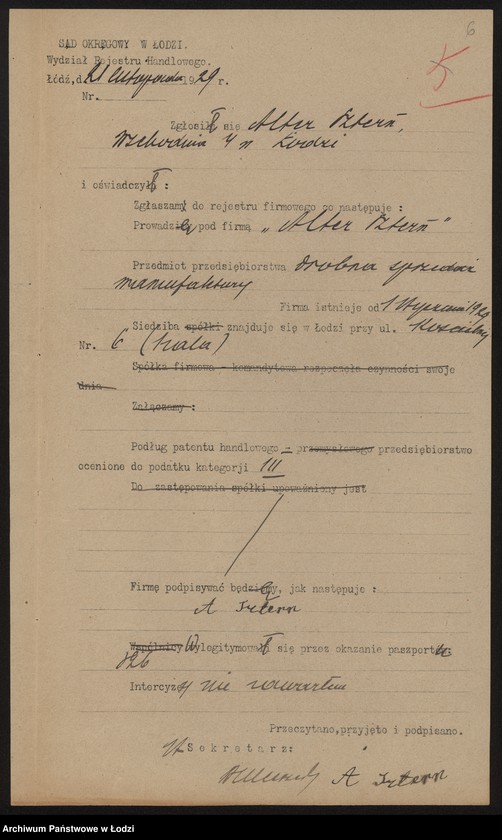 6
5
SĄD OKRĘGOWY W ŁODZI.
Wydział Rejestru Handlowego.
Łódź, d. 21 listopada 1929 r.
Nr.
Zgłosił się Alter Sztern,
Wschodnia 4 w Łodzi
i oświadczył :
Zgłaszam do rejestru firmowego co następuje :
Prowadzę pod firmą „Alter Sztern"
Przedmiot przedsiębiorstwa drobna sprzedaż
manufaktury
Firma istnieje od 1 stycznia 1929
Siedziba spółki znajduje się w Łodzi przy ul. Kościelny
Nr. 6 (hala)
Spółka firmowa - komandytowa rozpoczęła czynności swoje
dnia
Załączamy :
Podług patentu handlowego - przemysłowego przedsiębiorstwo
ocenione do podatku kategorji III
Do zastępowania spółki upoważniony jest
Firmę podpisywać będę, jak następuje :
A Sztern
Wspólnicy Wylegitymował się przez okazanie paszportu
826
Intercyzy nie zawarłem
Przeczytano, przyjęto i podpisano.
Sekretarz:
A Sztern
Archiwum Państwowe w Łodzi